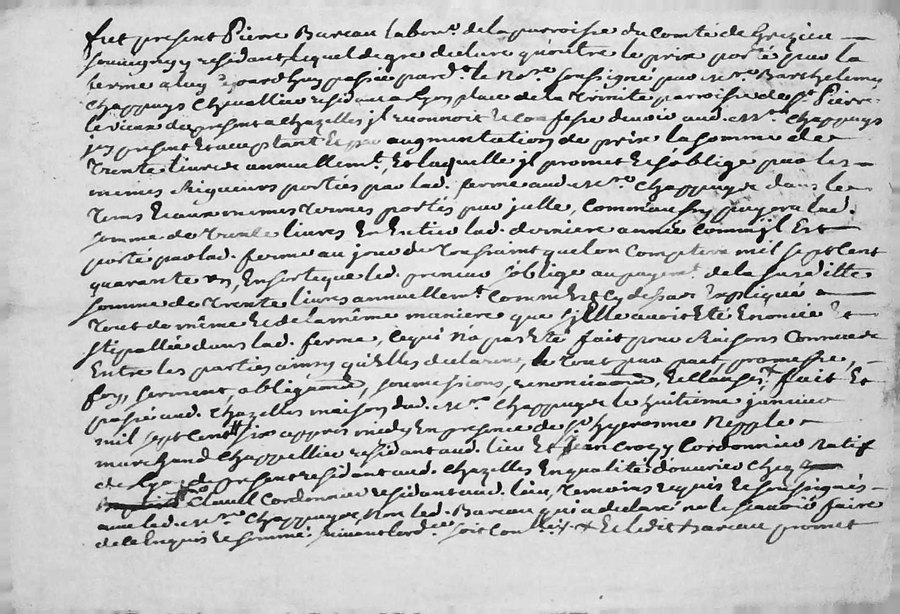 fut present Pierre Bareau labour. de la parroisse du Comté de Grezieu
Souvigny y residant, lequel de gre declare qu'outre le prix porté par la
ferme a luy ce jourdhuy passée pard.t le No.re soussigné par M.re Barthelemy
Chappuys Chevallier residant a Lyon place de la Trinité parroisse de St Pierre
le vieux de present a Chazelles jl reconnoit et confesse devoir aud. M.re Chappuys
jcy present et acceptant et par augmentation de prix la somme de
trente livres annuellem.t, Et laquelle jl promet et s'oblige par les
mêmes Rigueurs portées par lad. ferme aud. M.re Chappuys dans les
tems et aux mêmes termes portés par jcelle, Comm'aussy payera lad.
somme de trente livres En Entier lad. derniere année Comm'jl Est
porté par lad. ferme au jour de Toussaint que lon Comptera mil sept cent
quarante un, Ensorte que led. preneur s'oblige au payem.t de la susditte
somme de trente livres annuellem.t Comm'Est Cy dessus Expliqué
tout de même et de la même maniere que sj Elle avoit Eté Enoncée Et
stipullée dans lad. ferme, Ce qui n'a pas Eté fait pour Raisons Connues
Entre les parties ainsy qu'Elles declarent, le tout par pact, promesse,
foy, serment, obligeance, soumissions, renonciaons, Et Clauses, fait Et
passé aud. Chazelles maison dud. M.re Chappuys le huitieme janvier
mil sept cent six appres midy En presence de Sr hyerosme Neple
marchand Chappellier residant aud. lieu Et Jean Crozy Cordonnier Natif
de Lyon de present residant aud. Chazelles En qualité d'ouvrier Chez
Clavel Cordonnier residant aud. lieu, temoins requis et soussignés
avec led. M.re Chappuys, Non led. Bareau qui a declaré ne le scavoir faire
de ce Enquis et sommé. suivant lord.ce soit Con.llé /. + Et ledit Bareau promet